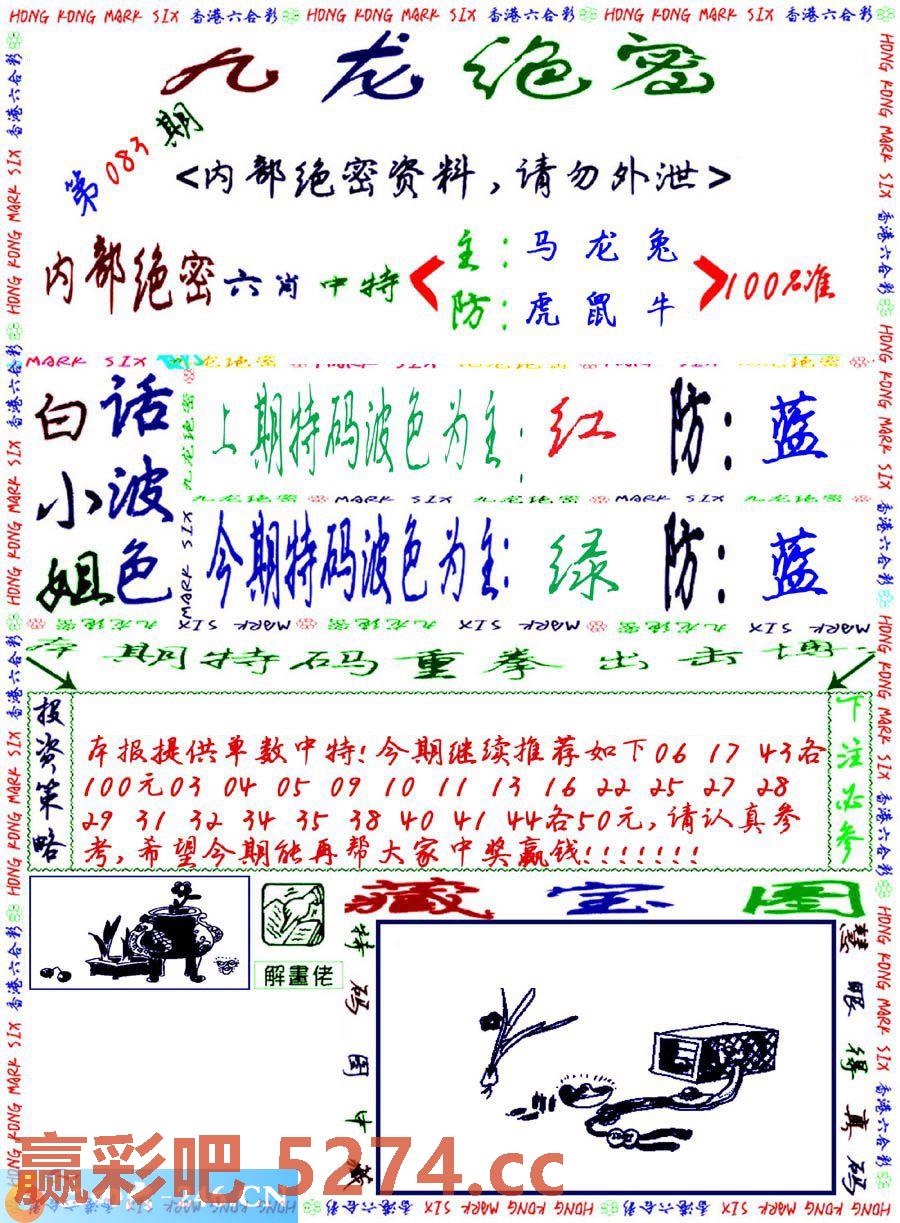 HONG KONG MARK SIX 香港六合彩 HONG KONG MARK SIX 香港六合彩 HONG KONG MARK SIX 香港六合彩
九龙绝密
第083期
<内部绝密资料,请勿外泄>
内部绝密六肖中特
主:马龙兔
防:虎鼠牛
100%准
白话小姐波色
上期特码波色为主:红 防:蓝
九龙绝密 MARK SIX 九龙绝密 MARK SIX 九龙绝密
今期特码波色为主:绿 防:蓝
期特码重拳出击
投资策略
本报提供单数中特!今期继续推荐如下06 17 43各
100元03 04 05 09 10 11 13 16 22 25 27 28
29 31 32 34 35 38 40 41 44各50元,请认真参
考,希望今期能再帮大家中奖赢钱!!!!!!!
下注必参
解畫佬
藏宝图
特码图中
慧眼得真码
赢彩吧 5274.cc